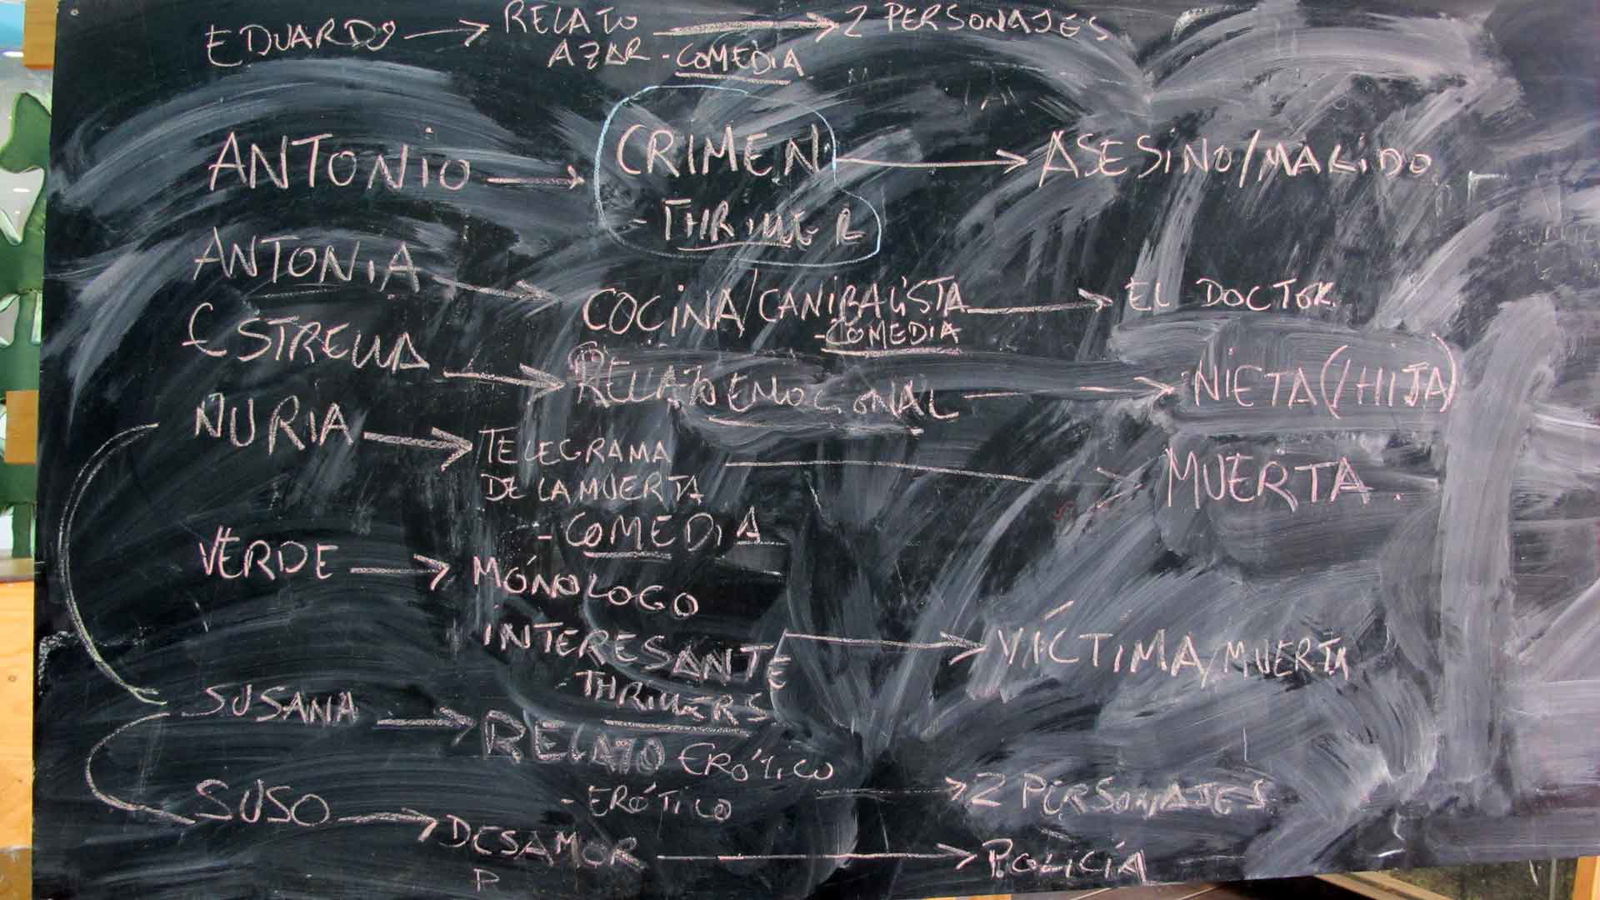 EDUARDO → RELATO → 2 PERSONAJES
AZAR - COMEDIA
ANTONIO → CRIMEN → ASESINO/MARIDO
- THRILLER
ANTONIA → COCINA/CANIBALISTA → EL DOCTOR
- COMEDIA
ESTRELLA → RELATO EMOCIONAL → NIETA(/HIJA)
NURIA → TELEGRAMA → MUERTA.
DE LA MUERTA
- COMEDIA
VERDE → MÓNOLOGO
INTERESANTE → VÍCTIMA/MUERTA
- THRILLERS
SUSANA → RELATO ERÓTICO
- ERÓTICO → 2 PERSONAJES
SUSO → DESAMOR → POLICÍA
P